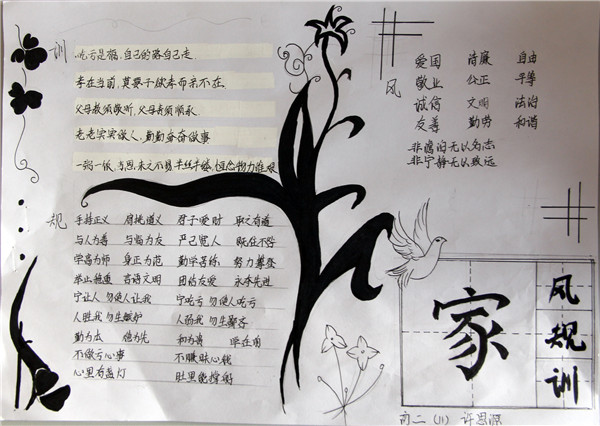 训
吃亏是福,自己的路自己走.
孝在当前,莫要子欲孝而亲不在.
父母教须敬听,父母责须顺承.
老老实实做人,勤勤奋奋做事
规
手持正义 肩挑道义 君子爱财 取之有道
与人为善 与 为友 严己宽人 既往不咎
学高为师 身正为范 勤学苦练 努力攀登
举止精通 言语文明 团结友爱 永争先进
宁让人 勿使人让我 宁吃亏 勿使人吃亏
人胜我 勿生嫉妒 人弱我 勿生鄙吝
勤为本 德为先 和为贵 学在前
不做亏心事 不赚昧心钱
心里有盏灯 肚里能撑船
风
爱国 清廉 自由
敬业 公正 平等
诚信 文明 法治
友善 勤劳 和谐
非澹泊无以明志
非宁静无以致远
家
风
规
训
高二 (11) 许思源